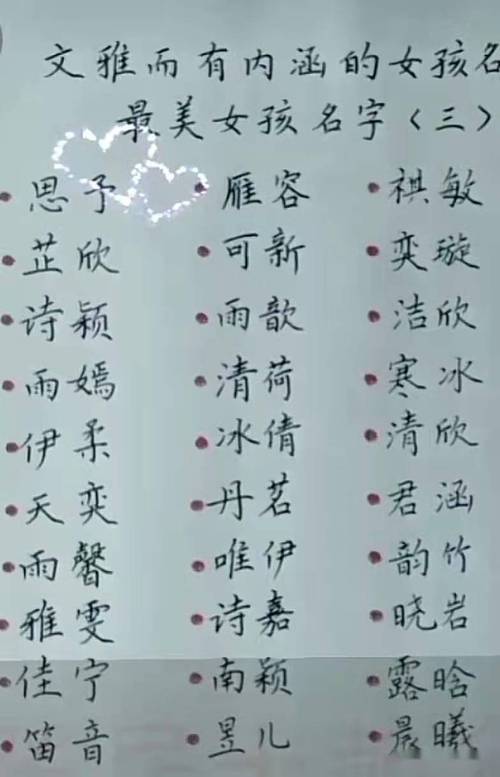 文雅而有内涵的女孩名
最美女孩名字（三）
思予 雁容 祺敏
芷欣 可新 奕璇
诗颖 雨歆 洁欣
雨嫣 清荷 寒冰
伊柔 冰倩 清欣
天奕 丹茗 君涵
雨馨 唯伊 韵竹
雅雯 诗嘉 晓岩
佳宁 南颖 露晗
笛音 昱儿 晨曦